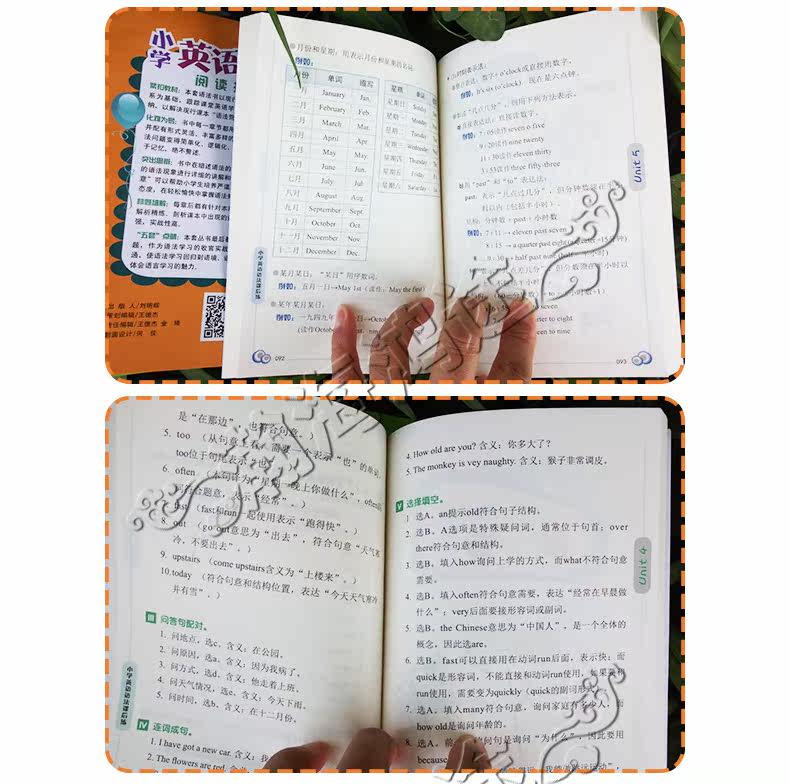 小学
英语
阅读
紧扣教材：本套丛书以现行
系为基础，跟踪课堂英语
纳，以解决现行课本“语法
化难为易：书中每一章节都
并配有形式灵活、丰富多样的
法问题变得简单化、逻辑化、
于记忆，绝不赘述。
突出思维：书中在细述语法的
的语法现象进行详细的讲解
意”可以帮助小学生培养严谨
态度，在轻松愉快中掌握语法
解析精练，剖析课本中出现的
径，实战性高。
“五套”点睛：本套丛书最后
题，作为语法学习的收官实战
通，使语法学习回归到语境，
体会语言学习的魅力。
出 版 人/刘明辉
策划编辑/王德杰
责任编辑/王德杰 金 琦
封面设计/何 纹
月份和星期：用表示月份和星期的名词。
例如：
月份 单词 缩写
一月 January Jan.
二月 February Feb.
三月 March Mar.
四月 April Apr.
五月 May May.
六月 June Jun.
七月 July Jul.
八月 August Aug.
九月 September Sept.
十月 October Oct.
十一月 November Nov.
十二月 December Dec.
星期 单词
星期日 Sunday
星期一 Monday
星期二 Tuesday
星期三 Wednesday
星期四 Thursday
星期五 Friday
星期六 Saturday
某月某日：“某日”用序数词。
例如：五月一日→May 1st（读作：May the first）
某年某月某日：
例如：一九四九年
小学英语语法课后练
092
整点表达：数字+ o'clock或直接用数字。
例如：It's six (o'clock). 现在是六点钟。
表达“几点几分”，则用下列方法表示。
直接表达法：直接读数字。
例如：7:05读作seven o five
9:20读作nine twenty
11:30读作eleven thirty
3:53读作three fifty-three
用“past”和“to”表达法：
past：表示“几点过几分”，但分钟数须在半小
时以内（包括半小时）。
结构：分钟数+ past + 小时数
例如：7:11→ eleven past seven
8:15→ a quarter past eight
Unit 5
093
是“在那边”，也符合句意。）
5. too （从句意上看，需要一个表示“也”的单词，
too位于句尾表示“也”
6. often
符合题意，表示“经常”。）
fast （fast和run一起使用表示“跑得快”。）
8. out （go out意思为“出去”，符合句意“天气寒
冷，不要出去”。）
9. upstairs （come upstairs含义为“上楼来”。）
10. today （符合句意和结构位置，表达“今天天气寒冷
并有雪”。）
Ⅲ 问答句配对。
1. 问地点，选c。含义：在公园。
2. 问原因，选a。含义：因为我病了。
3. 问方式，选d。含义：他走着上班。
4. 问天气情况，选e。含义：今天下雨。
5. 问时间，选b。含义：在十二月份。
Ⅳ 连词成句。
1. I have got a new car. 含义：我
2. The flowers are red.
小学英语语法课后练
4. How old are you? 含义：你多大了？
5. The monkey is vey naughty. 含义：猴子非常调皮。
Ⅴ 选择填空。
1 选A。an提示old符合句子结构。
2. 选B。A选项是特殊疑问词，通常位于句首；over
there符合句意和结构。
3. 选B。填入how询问上学的方式，而what不符合句意
需要。
4. 选B。填入often符合句意需要，表达“经常在早晨做
什么”；very后面要接形容词或副词。
5. 选B。the Chinese意思为“中国人”，是一个全体的
概念，因此选are。
6. 选B。fast可以直接用在动词run后面，表示快；而
quick是形容词，不能直接和动词run使用，如果要和
run使用，需要变为quickly（quick的副词形式）。
7. 选A。填入many符合句意，询问家庭有多少人；而
how old是询问年龄的。
8. 选A。
because
Unit 4